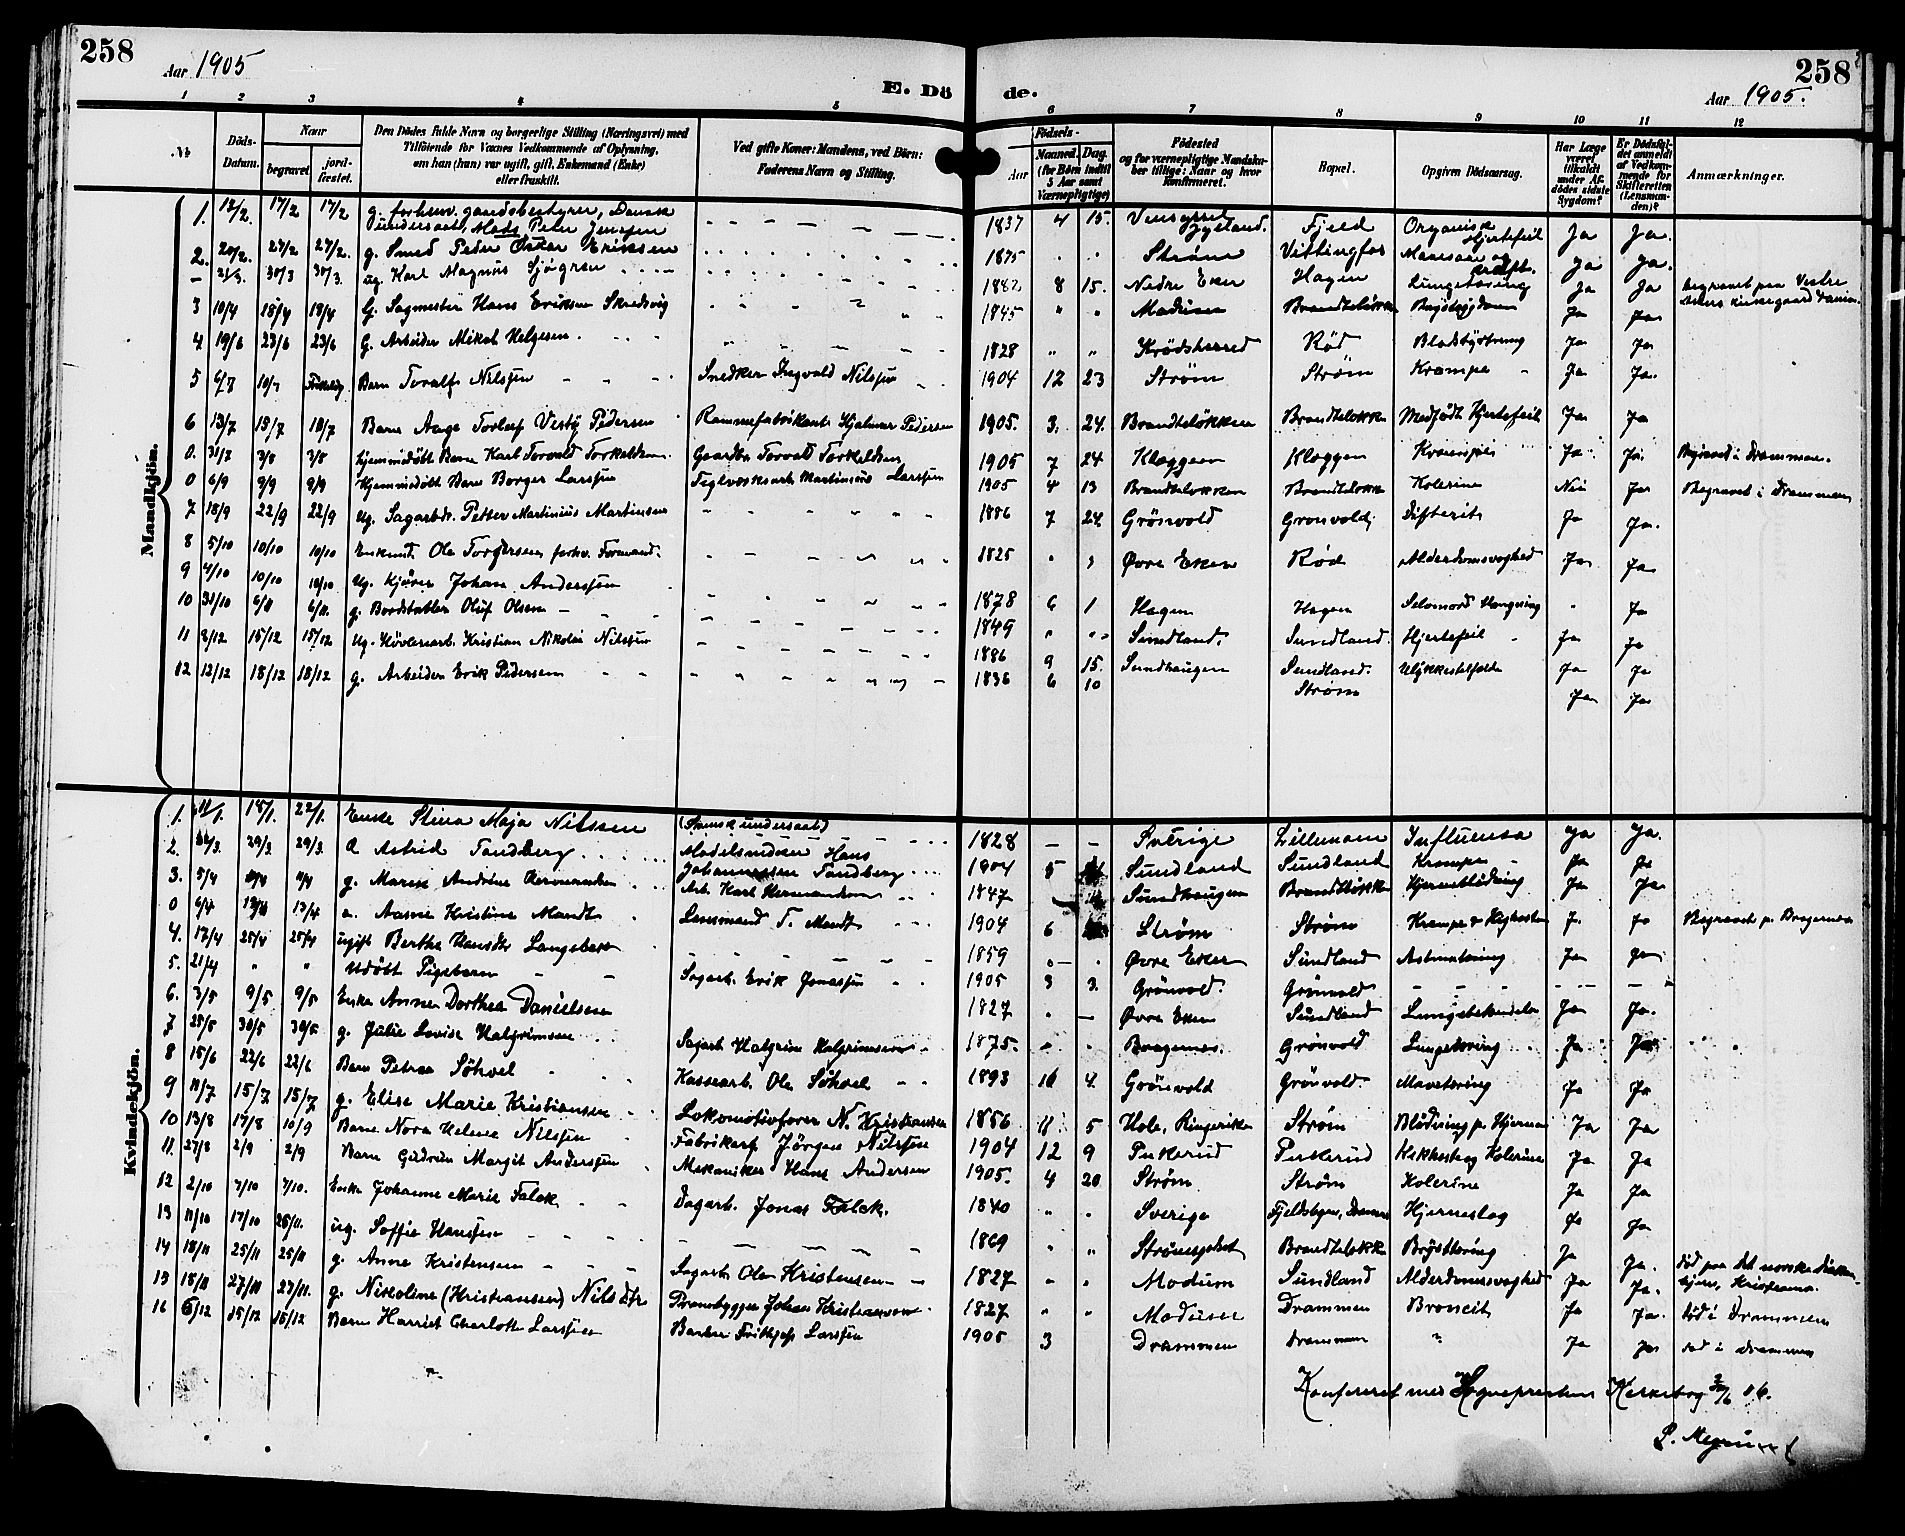 258
Aar 1905
E. Dö
de.
Aar 1905.
258
1 2 3 4 5 6 7 8 9 10 11 12
No
Döds-Datum.
Naar
begravet.
jord-fæstet.
Den Dödes fulde Navn og borgerlige Stilling (Næringsvei) med
Tilföiende for Voxnes Vedkommende af Oplysning,
om han (hun) var ugift, gift, Enkemand (Enke)
eller fraskilt.
Ved gifte Koner: Mandens, ved Börn:
Faderens Navn og Stilling.
Födsels-
Aar
Maaned. Dag.
(for Börn indtil
5 Aar samt
Værnepligtige)
Födested
og for værnepligtige Mandsku-
ber tillige: Naar og hvor
Konfirmeret.
Bopæl.
Opgiven Dödsaarsag.
Har Læge
været
tilkaldt
under Af-
dödes sidste
Sygdom?
Er Dödsfal-
det anmeldt
af Vedkom-
mende for
Skifteretten
(Lensman-
den)?
Anmærkninger.
Mandkjön.
1. 12/2. 17/2 17/2 g. forhenv. gaardsbestyrer, Dansk
undersaat, Mads Peter Jensen 1837 4 15. Vensyssel Jylland. Fjeld Organisk Hjertefeil Ja Ja.
2. 20/2. 27/2 27/2. g. Smed Peder Oskar Eriksen 1875 Strøm Vittingfos Ja Ja.
– 30/3 30/3. ug. Karl Magnus Sjögren 1882 8 15. Nedre Eker Hagen Lungetæring Ja Ja begravet paa Vestre
3 10/4 18/4 18/4 G. Sagmester Hans Eriksen Skredsvig 1845 " " Modum Brandteløkk Brystsygdom Ja Ja
4 19/6 23/6 23/6 G. Arbeider Mikal Helgesen 1828 " " Krødsherred Rød Blodstyrtning Ja Ja
5 6/7 10/7 Barn Toralf Nilssen Snedker Ingvald Nilssen 1904 12 23 Strøm Strøm Krampe Ja Ja.
6 13/7 18/7 18/7 Barn Aage Torleif Pedersen Rammefabrikant Hjalmar Pedersen 1905. 3. 24. Brandteløkken Brandteløkk Medfødt Hjertefeil Ja Ja
0. 31/7 3/8 3/8 hjemmedøbt Barn Karl Torvald Torkeldsen Gaardbr. Torvald Torkeldsen 1905 7 24 Kloggen Kloggen Ja Ja Begravet i Drammen.
0 6/9 9/9 9/9 Hjemmedøbt Barn Borger Larssen Teglverksarb. Martinius Larssen 1905 4 13 Brandteløkken Brandteløkk Kolerine Nei Ja Begravet i Drammen
7 18/9 22/9 22/9 Ug. Sagarbdr. Petter Martinius Martinsen 1886 7 24. Grönvold Grönvold Difterit Ja Ja.
8 5/10 10/10 10/10 Enkemd. Ole Torgersen forhv. Formand. 1825 Øvre Eker Rød Alderdomsvaghed Ja Ja
9 4/10 10/10 10/10 Ug. Kjører Johan Anderssen 1878 6 1 Hagen Hagen Selvmord Hængning Ja
10 31/10 6/11 6/11. g. Bordstabler Oluf Olsen 1849 Sundland. Sundland. Hjertefeil Ja Ja
11 8/12 15/12 15/12 Ug. Høvleriarb. Kristian Nikolai Nilssen 1886 9 15. Sundhaugen Sundland. Ulykkestilfælde Ja Ja
12 12/12 18/12 18/12 g. Arbeider Erik Pedersen 1836 6 10 Strøm Ja Ja
Kvindekjön.
1. 11/1. 18/1. 22/1. Enke Stina Maja Nilssen (Svensk undersaat) 1828 – – Sverige Lillemoen Influensa Ja Ja.
2. 29/3 29/3 Astrid Tandberg Modelsnedker Hans Johannessen Tandberg 1904 5 Sundland Sundland Krampe Ja Ja
3. 5/4 g. Maren Andrine Hermansen Arb. Karl Hermansen 1847 Sundhaugen Brandteløkk Hjerneblödning Ja Ja
0 6/4 13/4 Aasne Kristine Mandt Lensmand T. Mandt 1904 6 Strøm Strøm Krampe & Kighoste Ja Ja Begravet p. Bragernes
4. 17/4 25/4 25/4 ugift Berthe Hansdtr Langeberg 1859 Øvre Eker Sundland Astmatæring Ja Ja
5. 21/4 " " Udöbt Pigebarn Sagarb. Erik Jonassen 1905 3 3. Grönvold. Grönvold
6. 3/5 9/5 9/5 Enke Anne Dorthea Danielsen 1827 Øvre Eker Sundland Ja Ja.
7 25/5 30/5 30/5 g. Julie Lovise Halgrimsen Sagarb. Halgrim Halgrimsen 1875. Bragernes. Grönvold Lungetæring Ja Ja
8 15/6 22/6 22/6 Barn Petra Söhvel Kassearb. Ole Söhvel 1893 10 4. Grönvold Grönvold. Mavetæring Ja Ja
9 11/7 15/7 15/7 g. Elise Marie Kristiansen Lokomotivfører N. Kristiansen 1856 11 5 Hole, Ringerike Strøm Blödning p. Hjernen Ja Ja
10 13/8 17/8 10/9 Barn Nora Helene Nilssen Fabrikarb. Jörgen Nilssen 1904 12 9 Puskerud Puskerud Kikhoste og Kolerine Ja Ja
11. 27/8 2/9 2/9 Barn Gudrun Margit Anderssen Mekaniker Hans Andersen 1905. 4 20 Strøm Strøm Kolerine Ja Ja
12 2/10 7/10 7/10. Enke Johanne Marie Falck Dagarb. Jonas Falck. 1840 Sverige Fjeldsbyen, Drammen Hjerneslag Ja Ja
13 11/10 17/10 26/11. ug. Soffie Hanssen 1869 Strømsgodset Brandteløkk Brysttæring Ja Ja.
14 18/11 25/11 25/11 g. Anne Kristensen Sagarb. Ole Kristensen 1827 Modum Sundland Alderdomsvaghed Ja Ja. død paa det norske Diakon-
hjem, Kristiania.
15 18/11 27/11 27/11. g. Nikoline (Kristiansen) Nilsdtr Prambygger Johan Kristiansen 1827 Modum Drammen Broncit Ja Ja. død i Drammen
16 6/12 15/12 15/12 Barn Harriet Charlotte Larssen Barber Fritjof Larssen 1905 3 Drammen Drammen " Ja Ja død i Drammen
Konfereret med Sogneprestens Kirkebog 06.